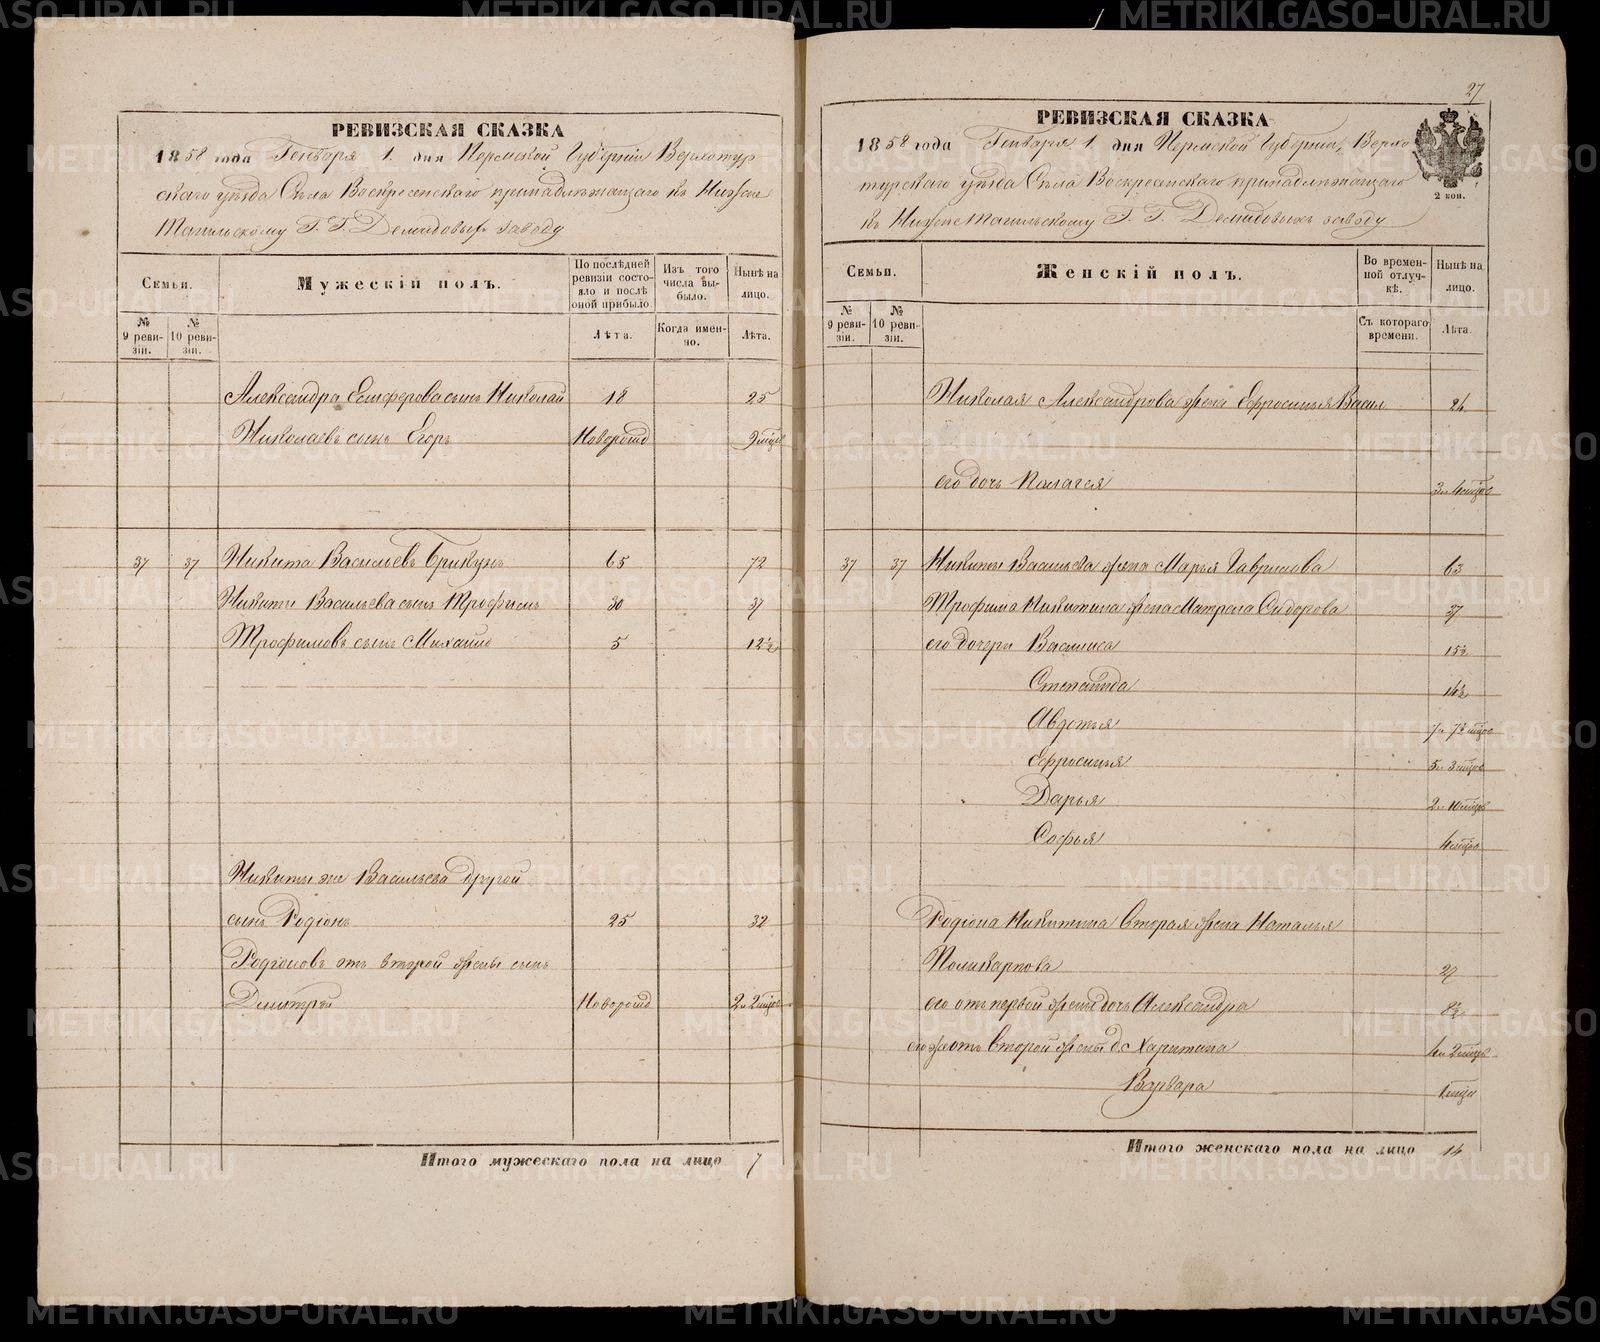 27
РЕВИЗСКАЯ СКАЗКА
1858 года Генваря 1 дня Пермской Губерніи Верхотур
скаго уѣзда Села Воскресенскаго принадлѣжащаго къ Нижне
Тагильскому Г. Г. Демидовых заводу
Семьи.
Мужескій полъ.
По послѣдней ревизіи состояло и послѣ оной прибыло
Изъ того числа выбыло.
Нынѣ на лицо.
№ 9 ревизіи.
№ 10 ревизіи.
Лѣта.
Когда именно.
Лѣта.
Александра сынъ Николай 18 25
Николаевъ сынъ Егоръ Новорожд 9 мѣцов
37 37 Никита Васильевъ 65 72
Никиты Васильева сынъ Трофимъ 30 37
Трофимовъ сынъ Михайло 5 12½
Никиты же Васильева другой
сынъ Родіонъ 25 32
Родіоновъ отъ второй жены сынъ
Дмитрей Новорожд 2 л 2 мѣцов
Итого мужескаго пола на лицо 7
РЕВИЗСКАЯ СКАЗКА
1858 года Генваря 1 дня Пермской Губерніи, Верхо
турскаго уѣзда Села Воскресенскаго принадлѣжащаго
къ Нижне Тагильскому Г. Г. Демидовыхъ заводу
2 коп.
Семьи.
Женскій полъ.
Во временной отлучкѣ.
Нынѣ на лицо.
№ 9 ревизіи.
№ 10 ревизіи.
Съ котораго времени.
Лѣта.
Николая Александрова жена Ефросинья Васил 24
его дочь Палагея 3 л 4 мѣцов
37 37 Никиты Васильева жена Марья Гаврилова 63
Трофима Никитина жена Матрена Сидорова 37
его дочери Василиса 15½
Степанида 14½
Авдотья 7 л 7½ мѣцов
Ефросинья 5 л 3 мѣцов
Дарья 2 л 10 мѣцов
Софья 4 мѣцов
Родіона Никитина вторая жена Наталья
Поликарпова 27
его отъ первой жены дочь Александра 8½
его же отъ второй жены д. Харитина 4 л 2 мѣцов
Варвара 1 мѣцъ
Итого женскаго пола на лицо 14
METRIKI.GASO-URAL.RU